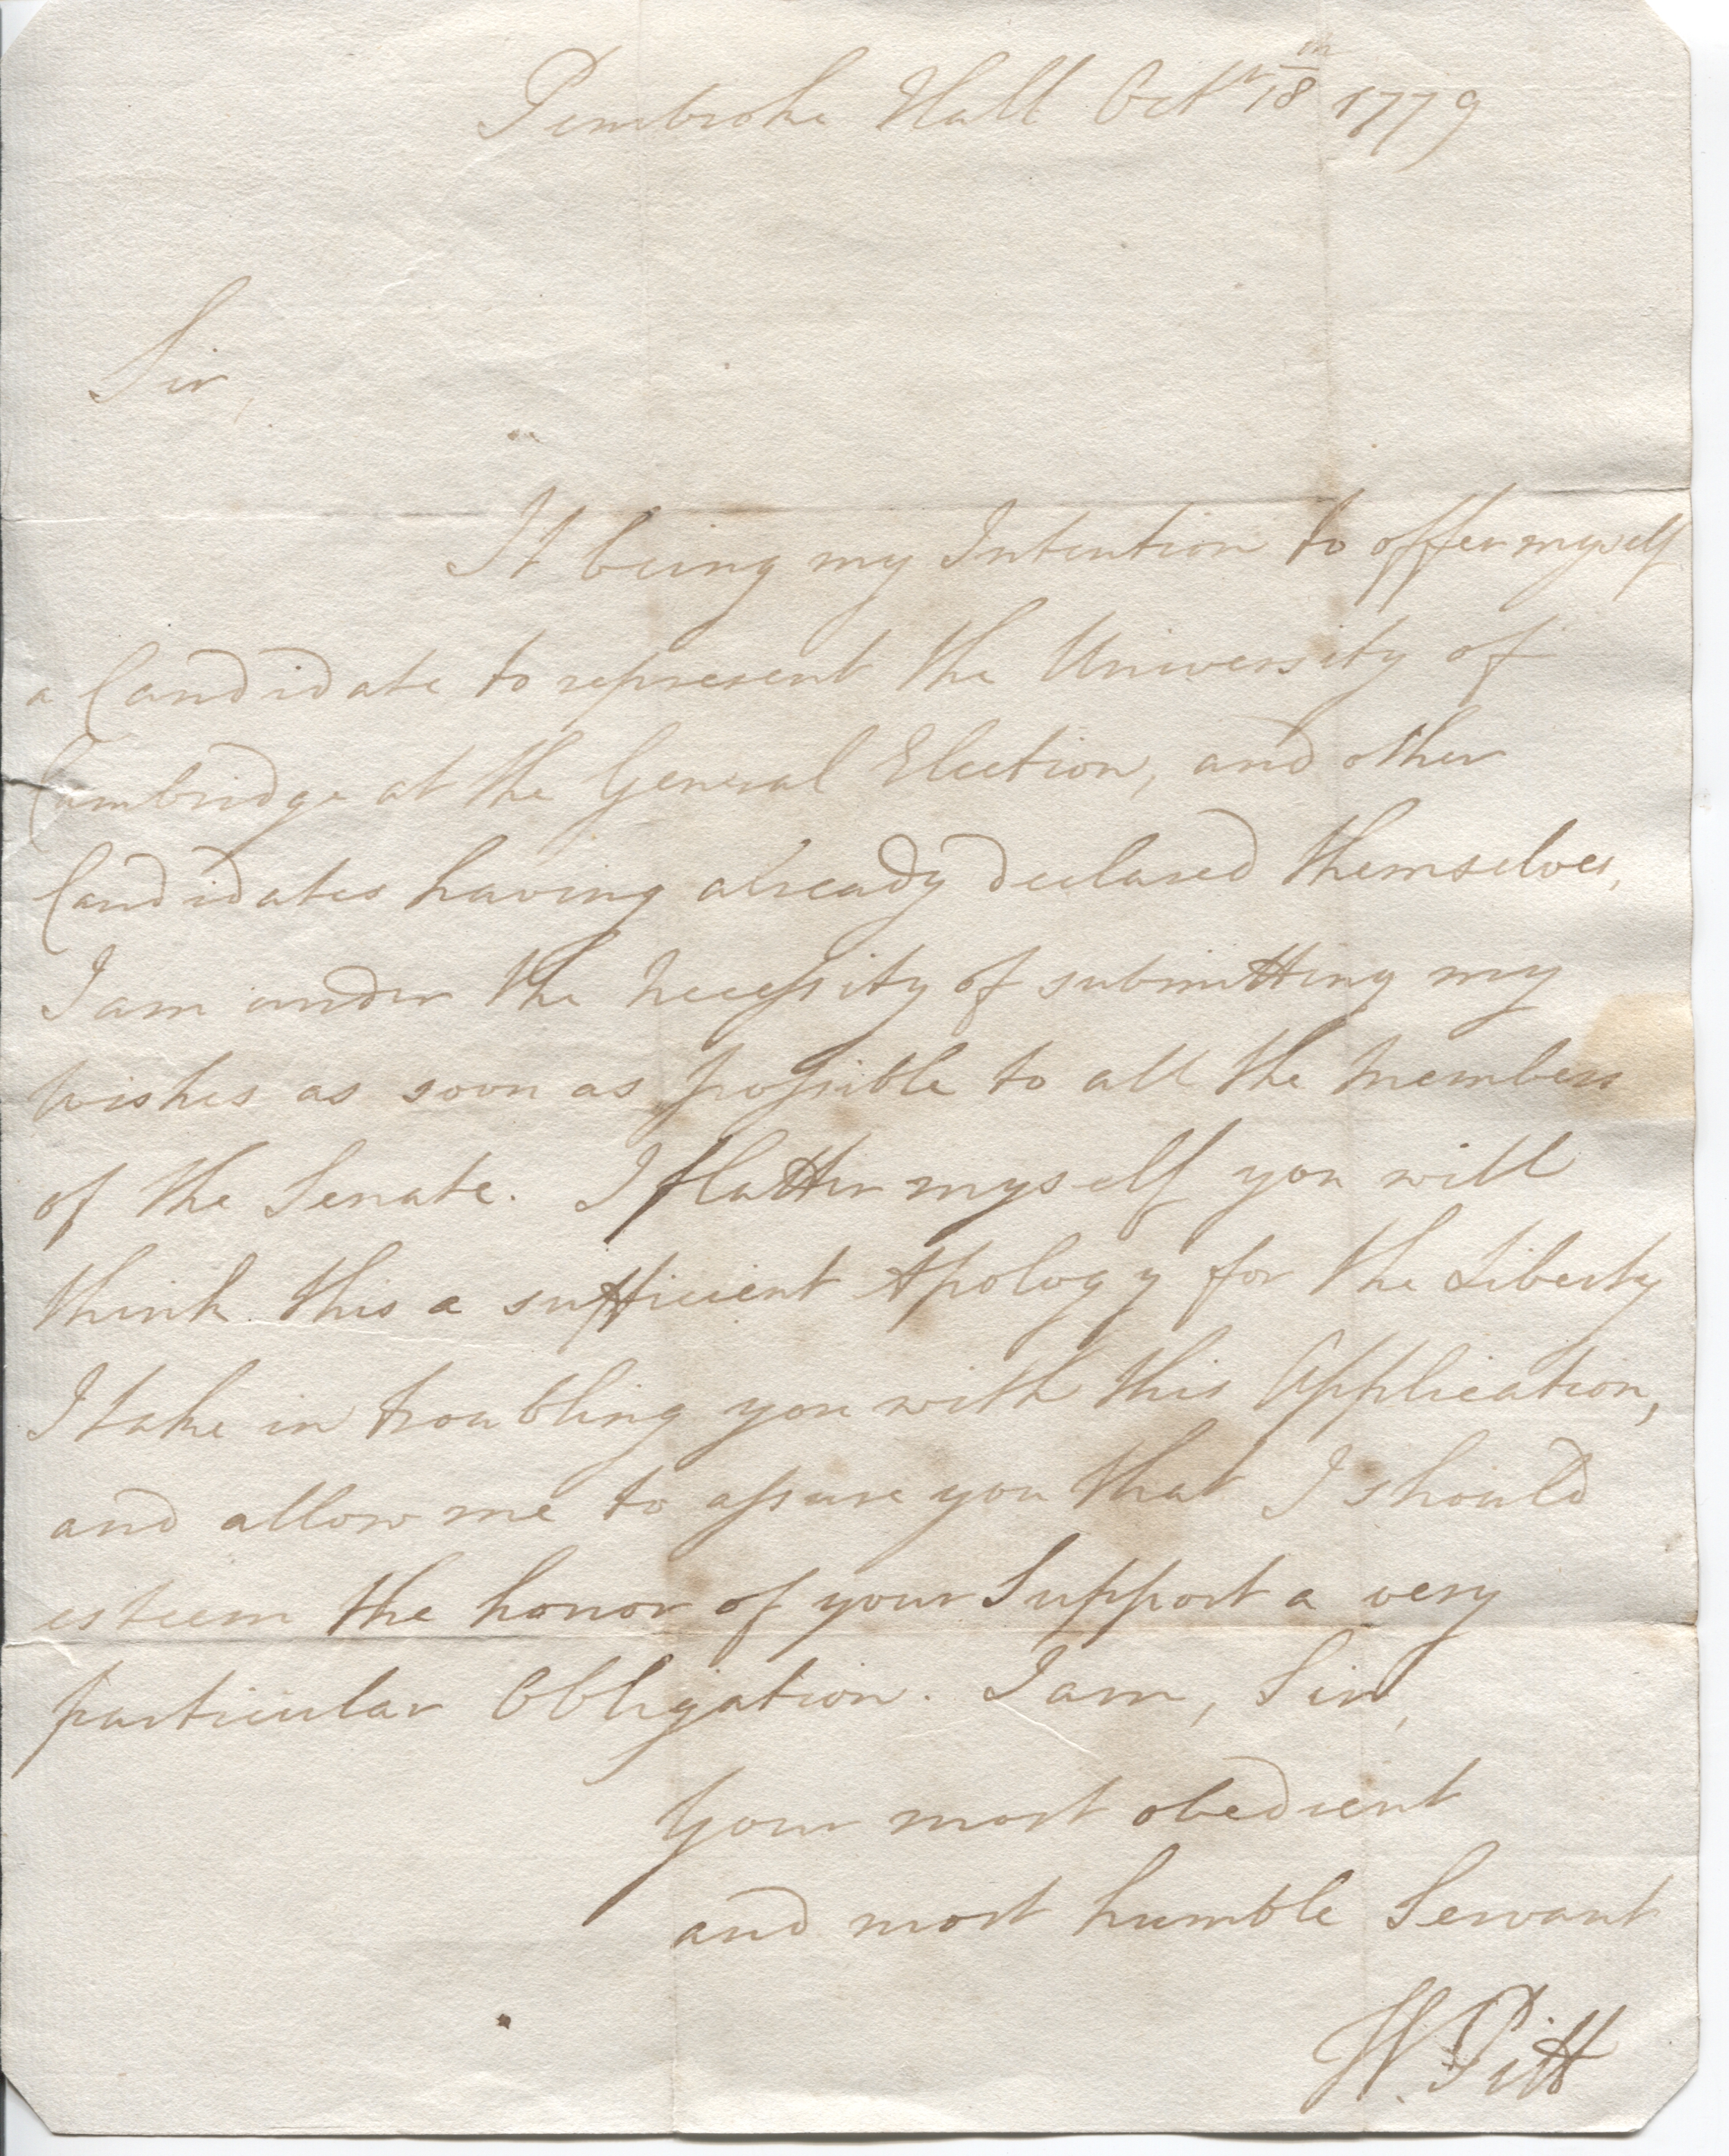 Pembroke Hall Octr 18th 1779
Sir,
It being my Intention to offer myself
a Candidate to represent the University of
Cambridge at the General Election, and other
Candidates having already declared themselves,
I am under the necessity of submitting my
wishes as soon as possible to all the Members
of the Senate. I flatter myself you will
think this a sufficient Apology for the Liberty
I take in troubling you with this Application,
and allow me to assure you that I should
esteem the honor of your Support a very
particular Obligation. I am, Sir,
Your most obedient
and most humble Servant
W. Pitt